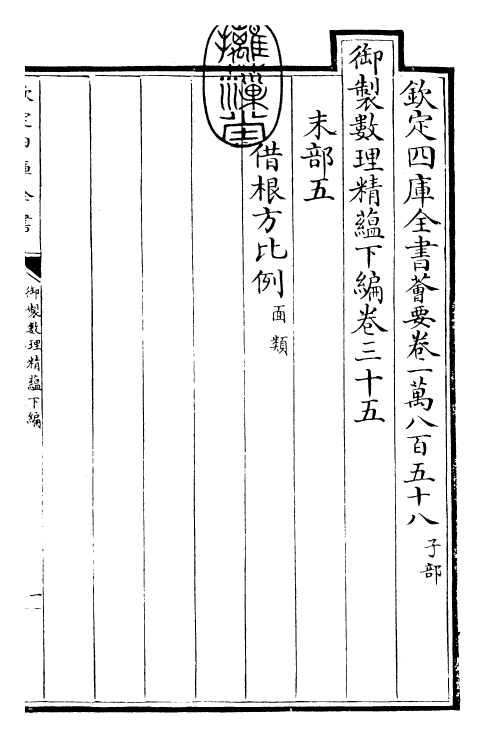 欽定四庫全書薈要卷一萬八百五十八 子部
御製數理精蘊下編卷三十五
末部五
借根方比例 面類
御製數理精蘊下編
一